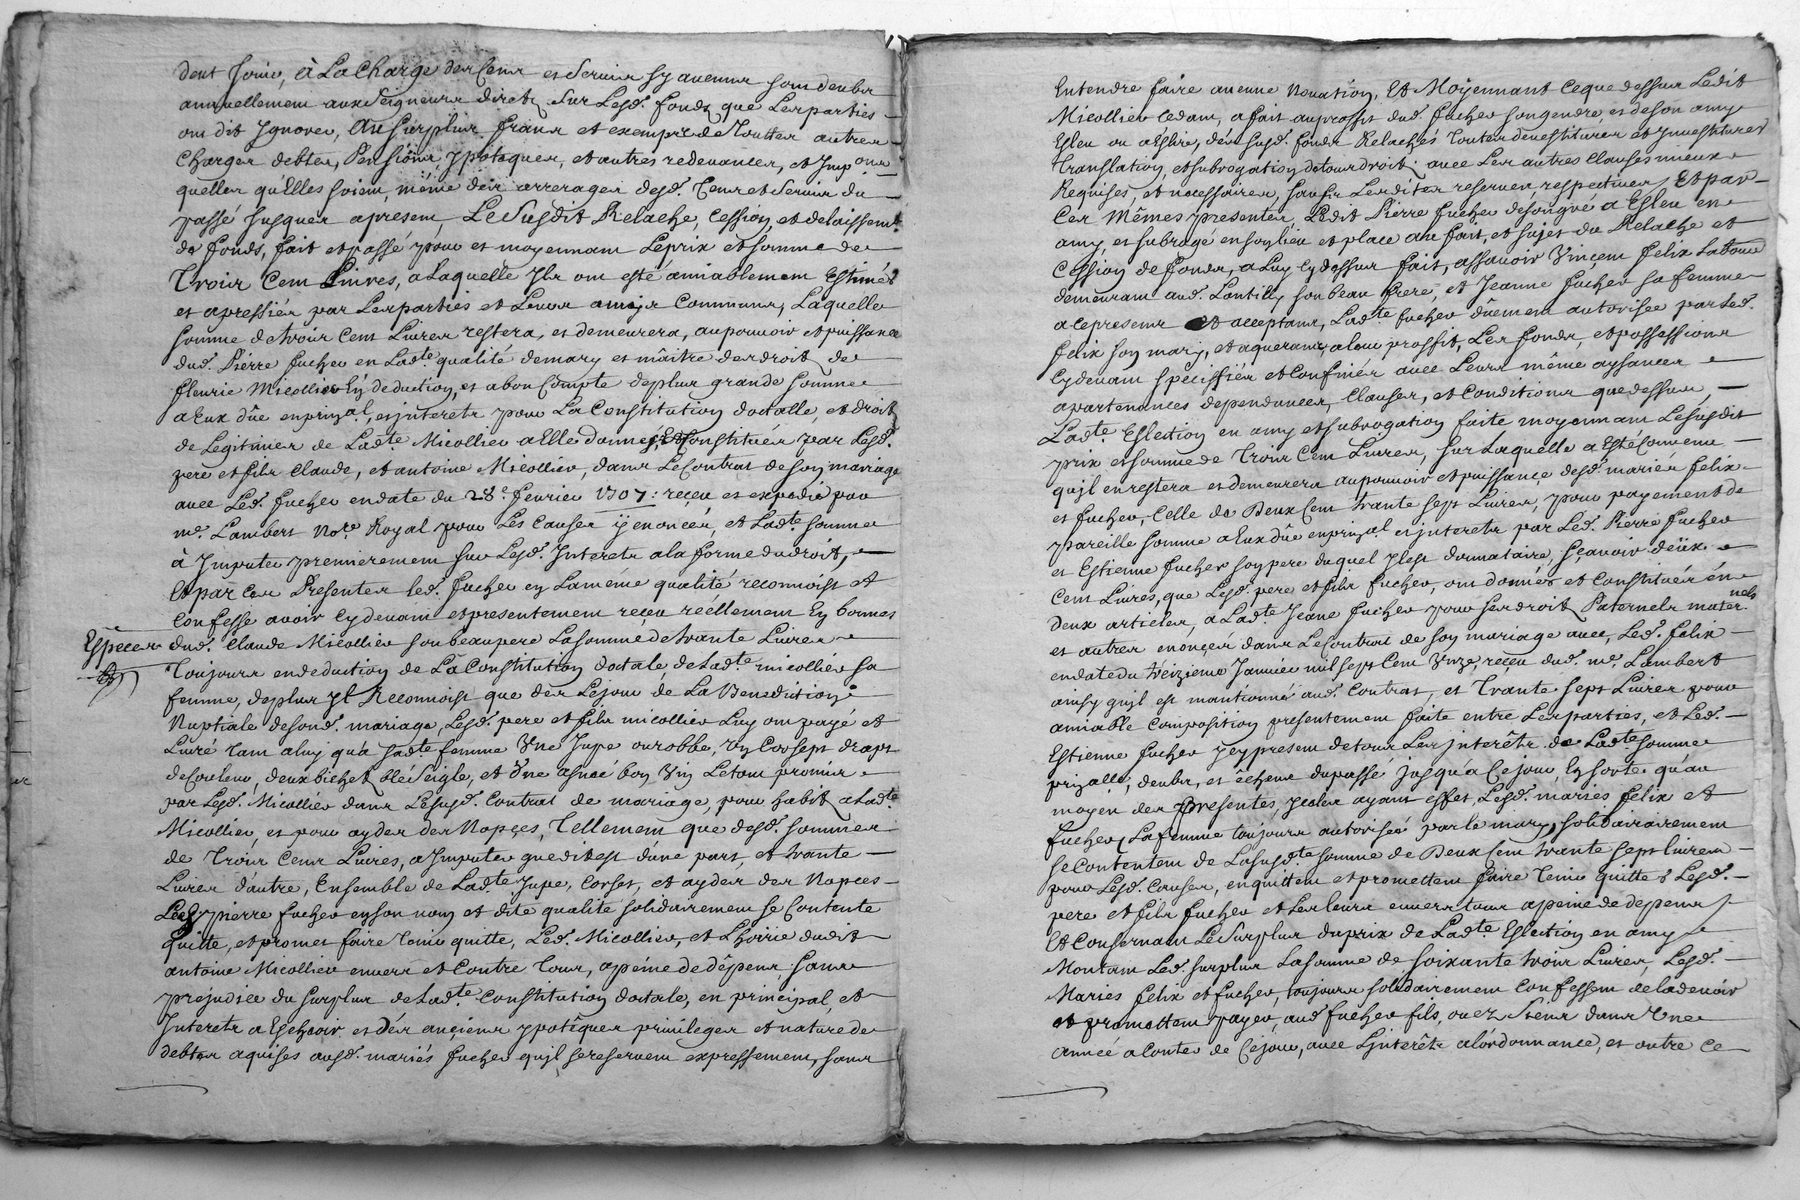 dent Jouir, à La Charge des Cens et Servis sy aucuns sont deubs
annuellement aux Seigneurs directz Sur Lesd. fondz que Lesparties
ont dit Ignorer, Au Surplus francs et exempts de Touttes autres
Charges debtes, Pensions ypoteques, et autres redevances, et Impons
quelles qu'Elles soient, même des arrerages desd. Cens et Servis du
passé Jusques apresent, Le Susdit Relache, Cession, et delaissemt.
de fonds, fait et passé pour et moyennant Leprix et somme de
Trois Cent Livres, a Laquelle Ils ont esté amiablement Estimés
et apressiés par Lesparties et Leurs amis Communs, Laquelle
somme de trois Cent Livres restera, et demeurera, au pouvoir et puissance
dud. Pierre fucher en Ladte. qualité de mary et maître des droit de
fleurie Micollier En deduction, et a bon Compte de plus grande somme
a Eux dûe en prizal, et interets pour La Constitution dottalle, et droit
de Legitimes de Ladte. Micollier a Elle donnés, Et Constitués par Lesd.
pere et fils Claude, et antoine Micollier, dans Le Contrat de son mariage
avec Led. fucher en date du 28e. fevrier 1707: reçeu et expedié par
me. Lambert Nore. Royal pour Les Causes y enoncées, et Ladte. somme
à Imputer premierement sur Lesd. Interets a la forme du droit,
Et par Ces Presentes Led. fucher en La même qualité reconnoist et
Confesse avoir Cydevant et presentement reçeu réellement En bonnes
Espèces dud. Claude Micollier son beaupere La somme de trante Livres
Toujours en deduction de La Constitution dottale de Ladte. micollier sa
femme, deplus Il Reconnoist que des Lejour de La Benediction
Nuptiale desond. mariage, Lesd. pere et fils micollier Luy ont payé et
Livré tant aluy qu'a sadte femme Une Jupe ou robbe, Un Corsept drapt
de Couleur, deux bichetz blé Seigle, et Une asnée bon Vin Letout promis
par Lesd. Micollier dans Lesusd. Contrat de mariage, pour habit a Ladte.
Micollier, et pour ayder des Nopçes, Tellement que desd. sommes
de Trois Cens Livres, a Imputer que dit est dune part, et trante
Livres d'autre, Ensemble de Ladte Jupe, Corset, et aydes des Nopces
Led. pierre fucher en son nom et dite qualité solidairement se Contente
quitte, et promet faire tenir quitte, Led. Micollier, et L'hoirie dudit
antoine Micollier envers et Contre Tous, apeine de dêpens sans
prejudice du surplus de Ladte. Constitution dottale, en principal, et
Interets a Escheoir et des anciens ypotêques privileges et nature de
debtes aquises ausd. mariés fucher quil se reservent expressement, sans
Entendre faire aucune Novation, Et Moyennant Ceque dessus Ledit
Micollier Cedant, a fait auproffit dud. fucher son gendre, et deson amy
Esleu ou a Eslire, des susd. fonds Relachés Toutes devestitures et Investitures
Translation, et subrogation detous droit; avec Les autres Clauses mieux
Requises, et necessaires, sauf Les dites reserves respectives, Et par
Ces Mêmes presentes, Ledit Pierre fucher de son gré a Esleu en
amy, et subrogé en son lieu et place au fait, et sujet du Relache et
Cession de fonds, a Luy Cydessus fait, assavoir Vinçent felix Laboureur
demeurant aud. Lantilly son beau frere, et Jeanne fucher sa femme
a Cepresents et acceptans, Ladte fucher dûement autorisée par Led.
felix son mary, et aquerans, a leur proffit Les fonds, et possessions
Cydevant speciffiés et Confinés avec Leurs même aysances
apartenances dependances, Clauses, et Conditions que dessus,
Ladte. Eslection en amy et subrogation faite moyennant Lesusdit
prix et somme de Trois Cent Livres, sur Laquelle a Esté Convenu
quil en restera et demeurera au pouvoir et puissance desd. mariés felix
et fucher, Celle de Deux Cent trante sept Livres, pour payement de
pareille somme a Eux dûe en prizal et interets par Led. Pierre fucher
et Estienne fucher son pere duquel il est donnataire, sçavoir deux
Cent Livres, que Lesd. pere et fils fucher, ont donnés et Constitués en
deux articles, a Ladte. Jeane fucher pour ses droit Paternels maternels
et autres enonçés dans Le Contrat de son mariage avec, Led. felix
en date du treizieme Janvier mil sept Cent Unze, reçeu dud. me. Lambert
ainsy quil est mantionné aud. Contrat, et Trante sept Livres pour
amiable Composition presentement faite entre Lesparties, et Led.
Estienne fucher yey present detous Les interêts de Ladte somme
prizalle, deubs, et êcheus dupassé jusqu'a Cejour, En sorte qu'au
moyen des presentes, Icelles ayant effet, Lesd. mariés felix et
fucher, La femme toujours autorisée par le mary, solidairairement
se Contentent de La susdte somme de Deux Cent trante sept livres
pour Lesd. Causes, en quittent et promettent faire Tenir quitte Lesd.
pere et fils fucher et Les leurs envers tous apeine de depens
Et Consernant Le Surplus du prix de Ladte Eslection en amy
Montant Led. surplus La somme de soixante trois Livres, Lesd.
Mariés felix et fucher, toujours solidairement Confessent de la devoir
et promettent payer, aud. fucher fils, ou ez Siens dans Une
année a Conter de Cejour, avec L'interêts a l'ordonnance, et outre Ce